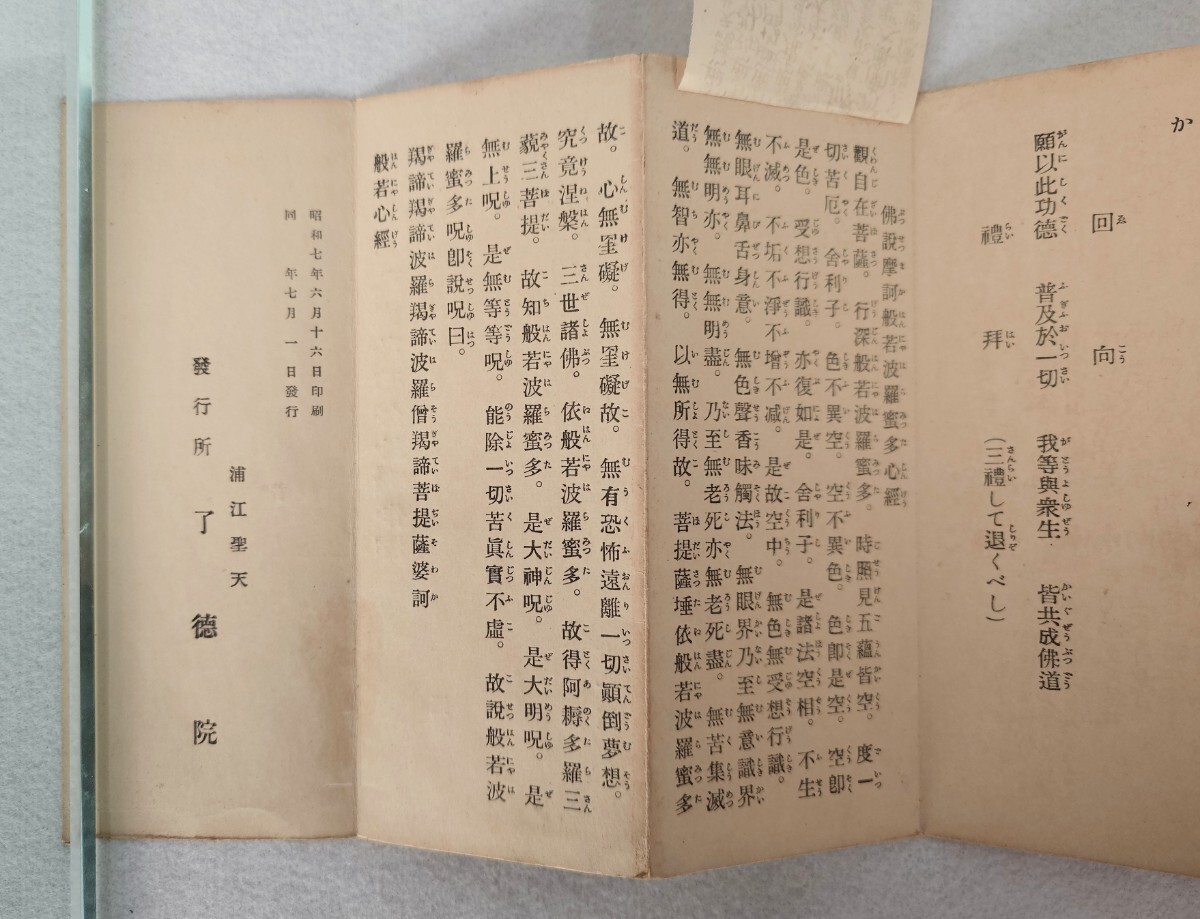 か
回向
願以此功德 普及於一切 我等與衆生 皆共成佛道
禮拜 (三禮して退くべし)
佛說摩訶般若波羅蜜多心經
觀自在菩薩。行深般若波羅蜜多。時照見五蘊皆空。度一
切苦厄。舍利子。色不異空。空不異色。色卽是空。空卽
是色。受想行識。亦復如是。舍利子。是諸法空相。不生
不滅。不垢不淨不增不减。是故空中。無色無受想行識。
無眼耳鼻舌身意。無色聲香味觸法。無眼界乃至無意識界
無無明亦。無無明盡。乃至無老死亦無老死盡。無苦集滅
道。無智亦無得。以無所得故。菩提薩埵依般若波羅蜜多
故。心無罣礙。無罣礙故。無有恐怖遠離一切顚倒夢想。
究竟涅槃。三世諸佛。依般若波羅蜜多。故得阿耨多羅三
藐三菩提。故知般若波羅蜜多。是大神呪。是大明呪。是
無上呪。是無等等呪。能除一切苦眞實不虛。故說般若波
羅蜜多呪卽說呪曰。
羯諦羯諦波羅羯諦波羅僧羯諦菩提薩婆訶
般若心經
昭和七年六月十六日印刷
同 年七月 一 日發行
浦江聖天
發行所 了德院